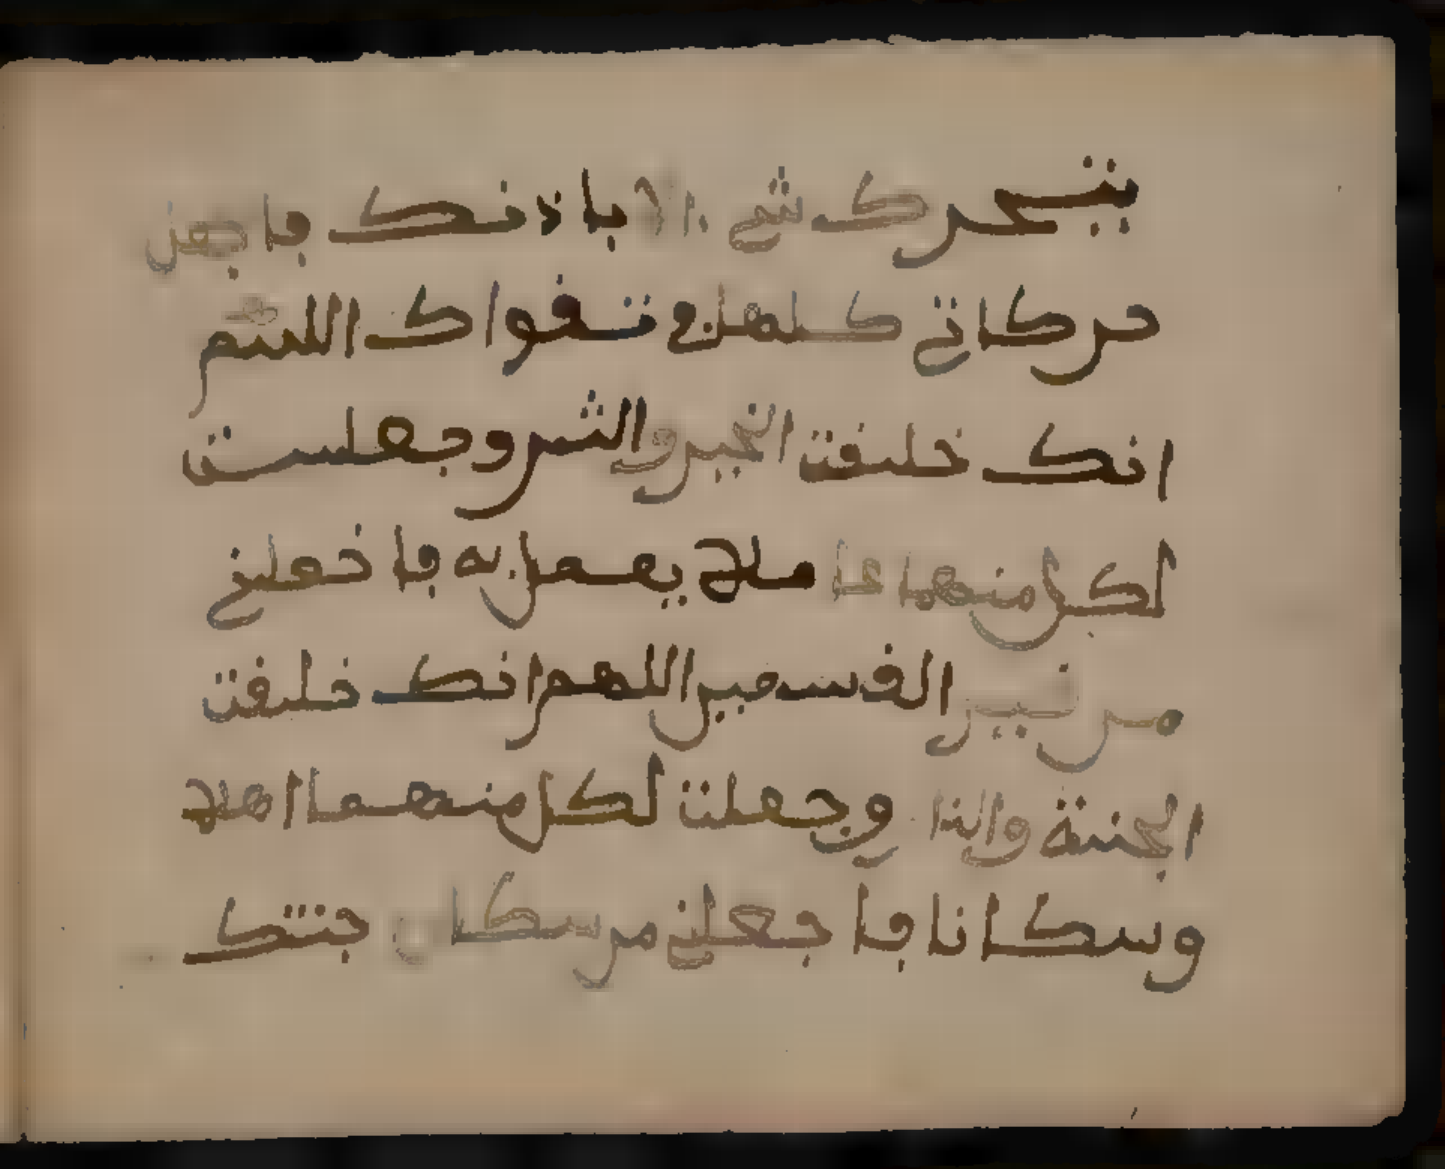 يتحرك شي الا باذنك فاجعل
حركاتي كلها في تقواك اللهم
انك خلقت الخير والشر وجعلت
لكل منهما عاملا يعمل به فاجعلني
من خير القسمين اللهم انك خلقت
الجنة والنار وجعلت لكل منهما اهلا
وسكانا فاجعلني من سكان جنتك